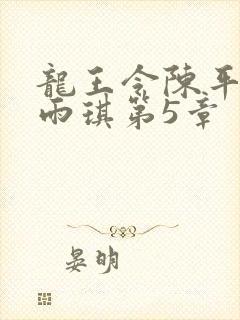 龍王令陳平
雨琪第5章
晏明